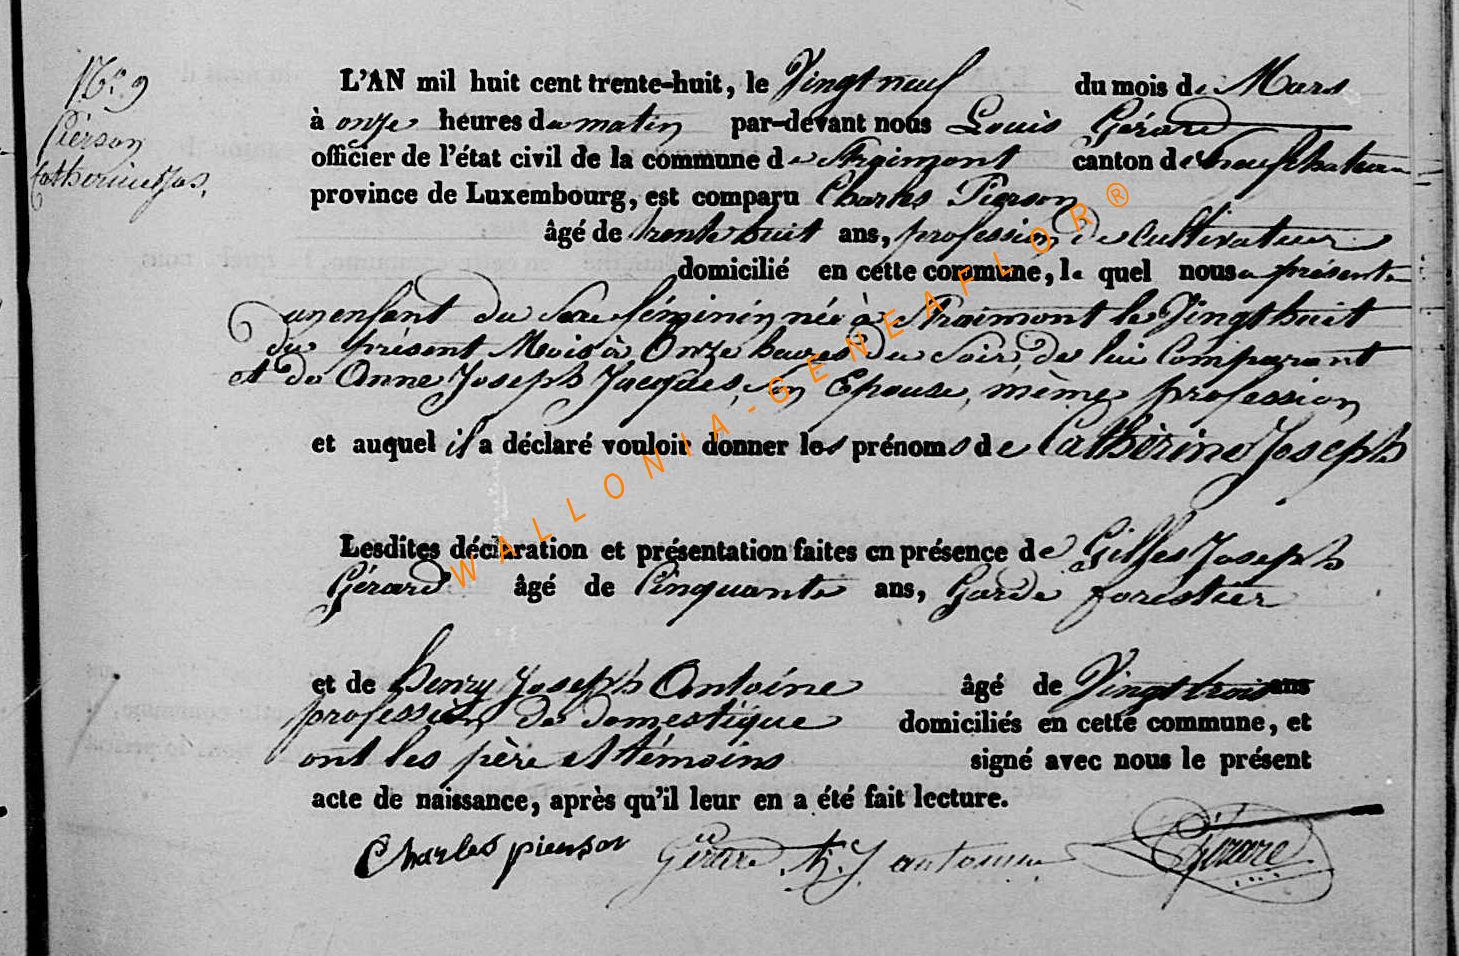 N.° 9
Pierson
Catherine Jos.
L'AN mil huit cent trente-huit, le Vingt neuf du mois de Mars
à onze heures du matin par-devant nous Louis Gérard
officier de l'état civil de la commune de Straimont canton de Neufchateau
province de Luxembourg, est comparu Charles Pierson
âgé de trente huit ans, profession de Cultivateur
domicilié en cette commune, le quel nous a présenté
un enfant du Sexe féminin née à Straimont le Vingt huit
du présent Mois à Onze heures du Soir, de lui Comparant
et de Anne Joseph Jacques, son Epouse, même profession
et auquel il a déclaré vouloir donner les prénoms de Cathérine Joseph
Lesdites déclaration et présentation faites en présence de Gilles Joseph
Gérard âgé de Cinquante ans, Garde forestier
et de henry Joseph Antoine âgé de Vingt trois ans
profession de domestique domiciliés en cette commune, et
ont les père et témoins signé avec nous le présent
acte de naissance, après qu'il leur en a été fait lecture.
Charles pierson Gérard h. J antoine Gérard
WALLONIA-GENEAFLOR®